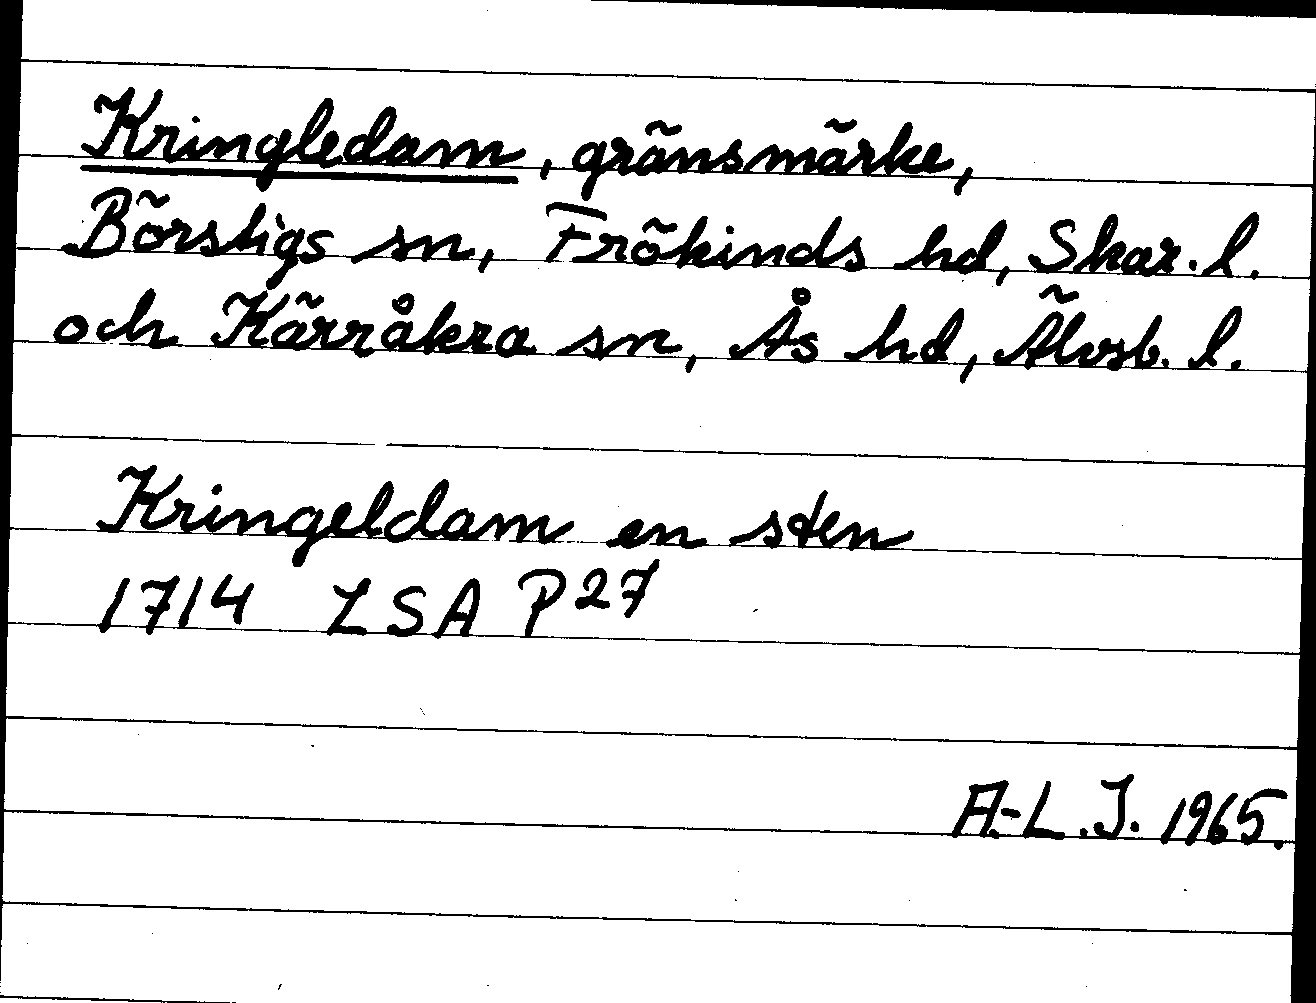 Kringledam, gränsmärke,
Börstigs sn, Frökinds hd, Skar. l.
och Kärråkra sn, Ås hd, Älvsb. l.
Kringeldam en sten
1714 LSA P27
A.-L. J. 1965.